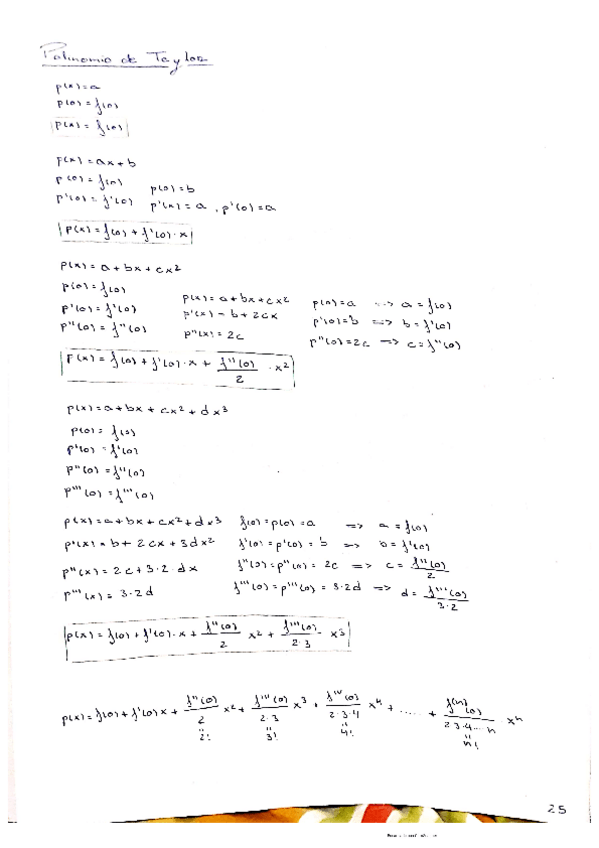 Polinomio de Taylor
p(x) = a
p(0) = f(0)
p(x) = f(0)
p(x) = ax + b
p(0) = f(0) p(0) = b
p'(0) = f'(0) p'(x) = a , p'(0) = a
p(x) = f(0) + f'(0) · x
p(x) = a + bx + cx²
p(0) = f(0) p(x) = a + bx + cx² p(0) = a => a = f(0)
p'(0) = f'(0) p'(x) = b + 2cx p'(0) = b => b = f'(0)
p''(0) = f''(0) p''(x) = 2c p''(0) = 2c => c = f''(0)
p(x) = f(0) + f'(0) · x + f''(0)/2 · x²
p(x) = a + bx + cx² + dx³
p(0) = f(0)
p'(0) = f'(0)
p''(0) = f''(0)
p'''(0) = f'''(0)
p(x) = a + bx + cx² + dx³ f(0) = p(0) = a => a = f(0)
p'(x) = b + 2cx + 3dx² f'(0) = p'(0) = b => b = f'(0)
p''(x) = 2c + 3·2·dx f''(0) = p''(0) = 2c => c = f''(0)/2
p'''(x) = 3·2d f'''(0) = p'''(0) = 3·2d => d = f'''(0)/3·2
p(x) = f(0) + f'(0) · x + f''(0)/2 x² + f'''(0)/2·3 · x³
p(x) = f(0) + f'(0) x + f''(0)/2 x² + f'''(0)/2·3 x³ + f^IV(0)/2·3·4 x⁴ + ..... + f^(n)(0)/2·3·4...n xⁿ
" " " "
2! 3! 4! n!
25